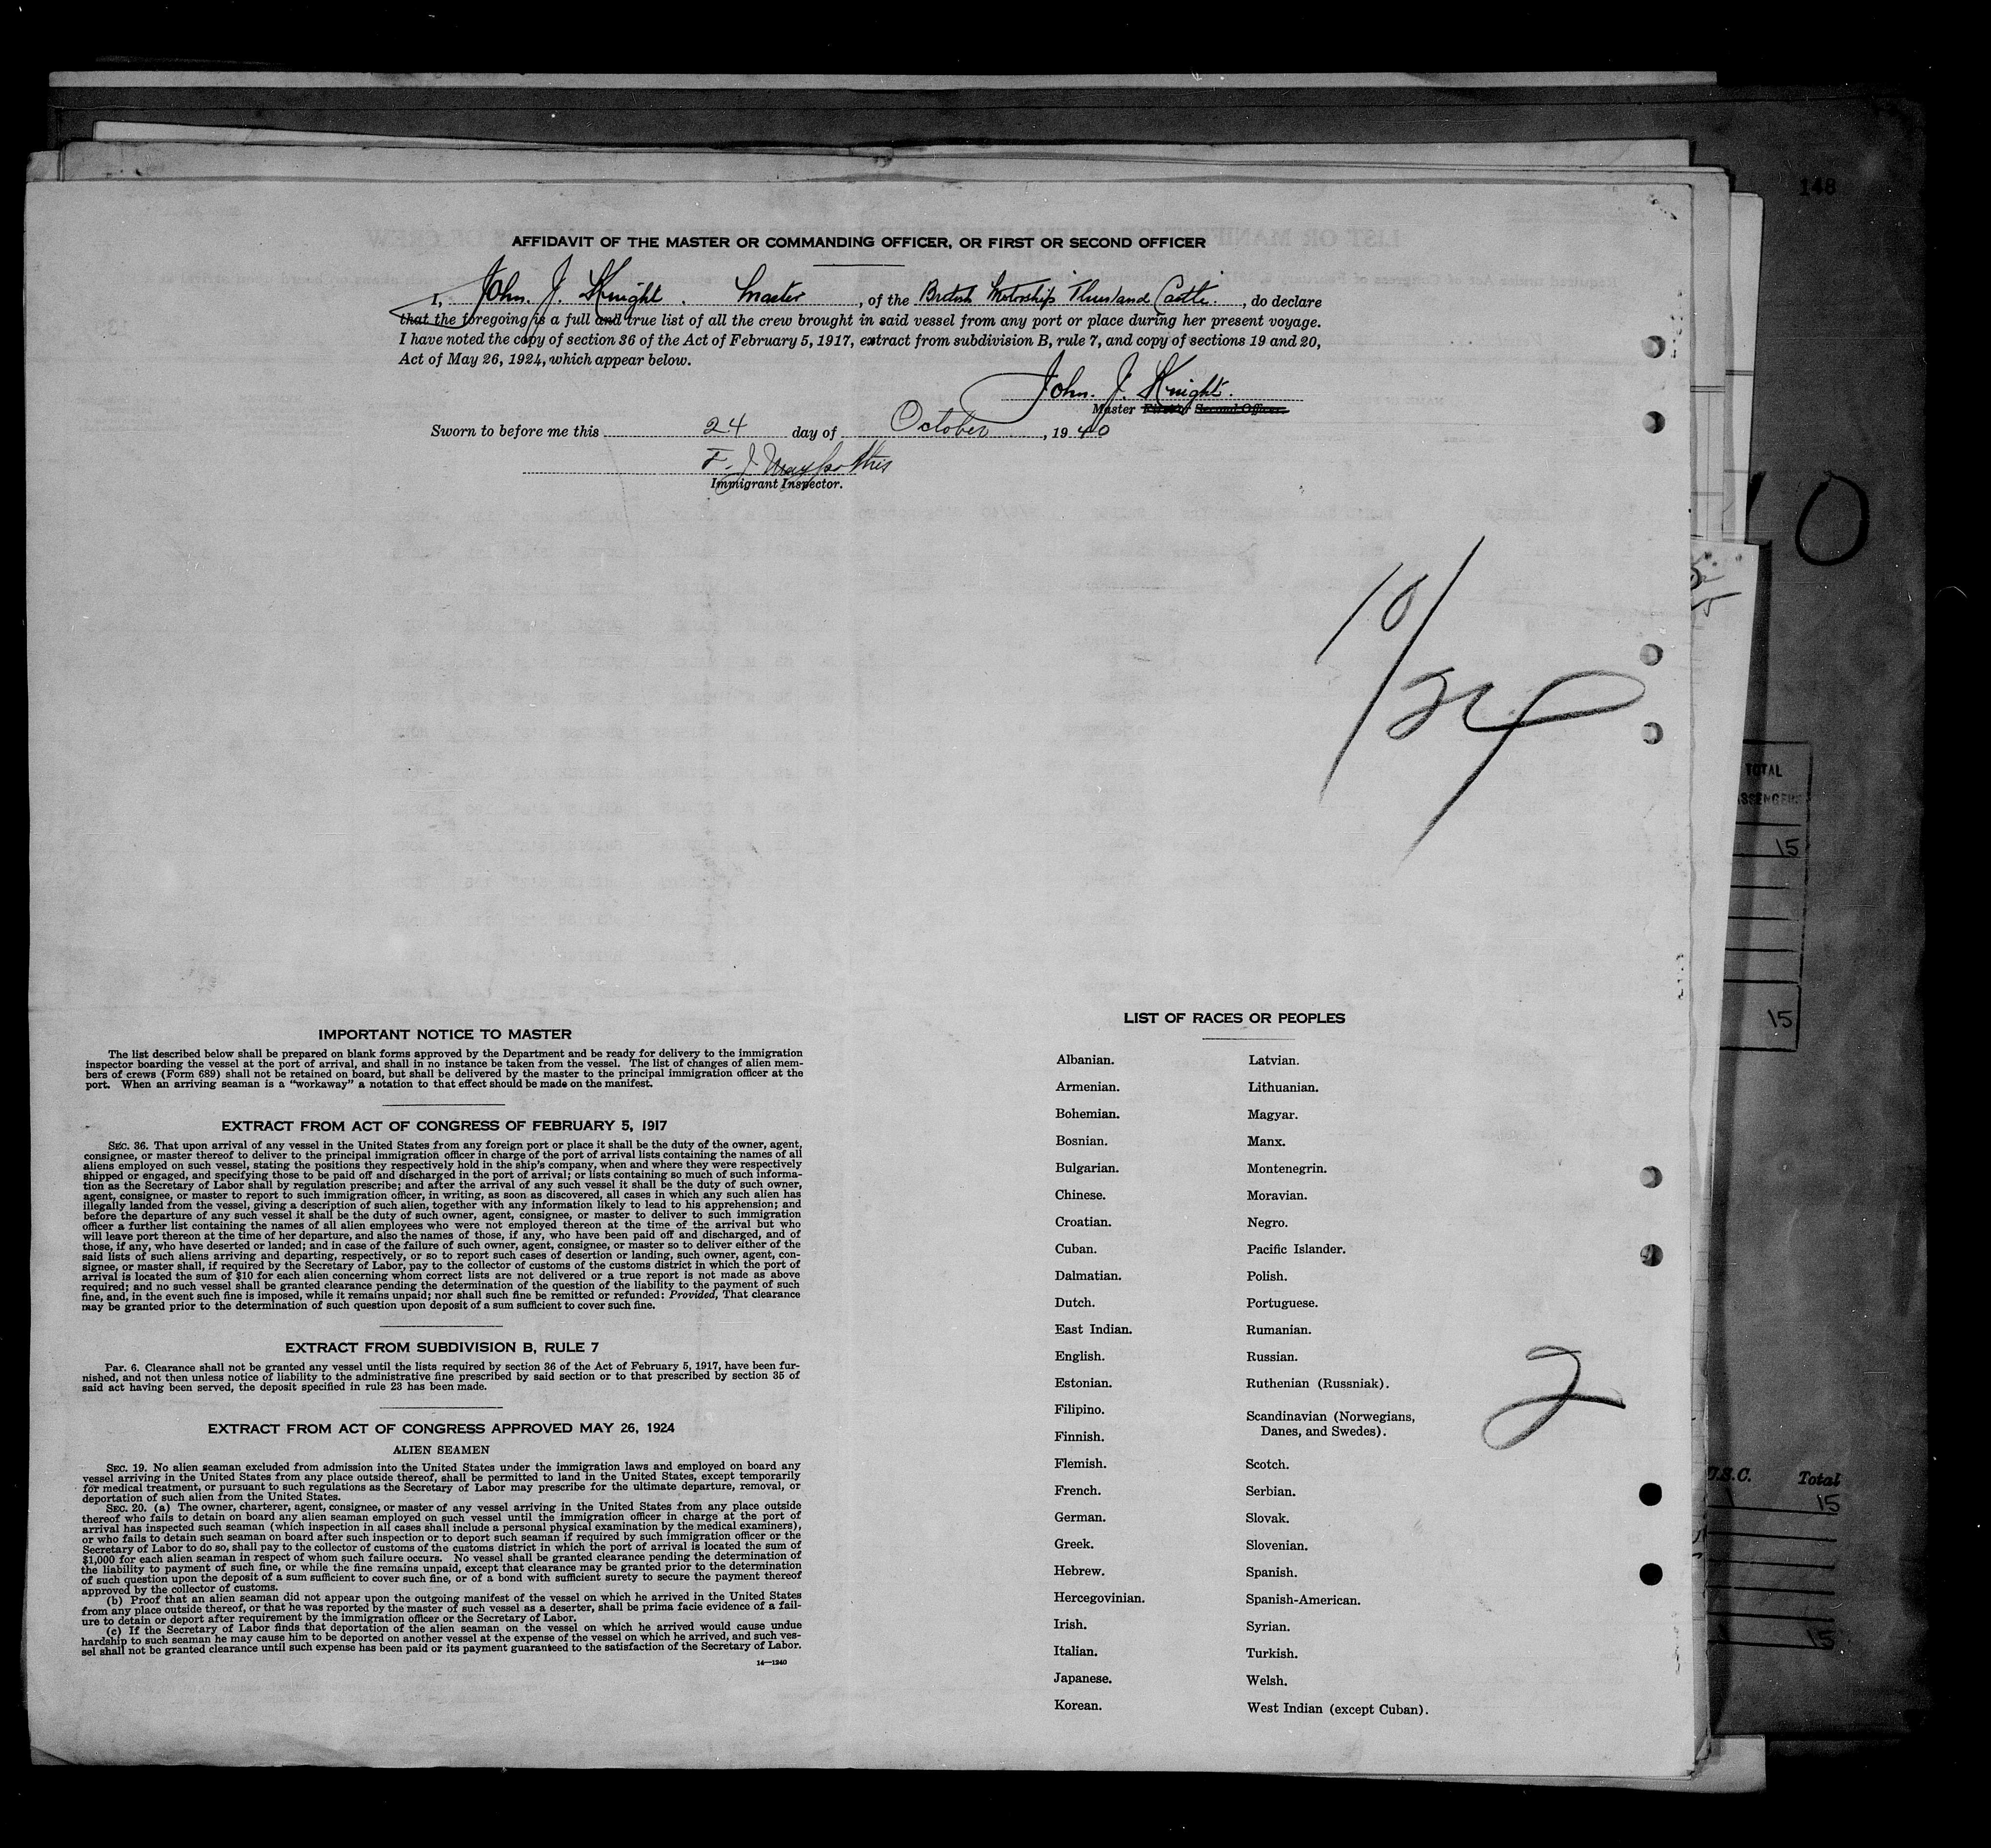 148
AFFIDAVIT OF THE MASTER OR COMMANDING OFFICER, OR FIRST OR SECOND OFFICER
I, John. J. Knight. Master, of the British Motorship Castle., do declare
that the foregoing is a full and true list of all the crew brought in said vessel from any port or place during her present voyage.
I have noted the copy of section 36 of the Act of February 5, 1917, extract from subdivision B, rule 7, and copy of sections 19 and 20,
Act of May 26, 1924, which appear below.
John. J. Knight.
Master First or Second Officer.
Sworn to before me this 24 day of October, 1940
F. J.
Immigrant Inspector.
0
10/24
TOTAL
15
15
IMPORTANT NOTICE TO MASTER
The list described below shall be prepared on blank forms approved by the Department and be ready for delivery to the immigration
inspector boarding the vessel at the port of arrival, and shall in no instance be taken from the vessel. The list of changes of alien mem-
bers of crews (Form 689) shall not be retained on board, but shall be delivered by the master to the principal immigration officer at the
port. When an arriving seaman is a "workaway" a notation to that effect should be made on the manifest.
EXTRACT FROM ACT OF CONGRESS OF FEBRUARY 5, 1917
SEC. 36. That upon arrival of any vessel in the United States from any foreign port or place it shall be the duty of the owner, agent,
consignee, or master thereof to deliver to the principal immigration officer in charge of the port of arrival lists containing the names of all
aliens employed on such vessel, stating the positions they respectively hold in the ship's company, when and where they were respectively
shipped or engaged, and specifying those to be paid off and discharged in the port of arrival; or lists containing so much of such informa-
tion as the Secretary of Labor shall by regulation prescribe; and after the arrival of any such vessel it shall be the duty of such owner,
agent, consignee, or master to report to such immigration officer, in writing, as soon as discovered, all cases in which any such alien has
illegally landed from the vessel, giving a description of such alien, together with any information likely to lead to his apprehension; and
before the departure of any such vessel it shall be the duty of such owner, agent, consignee, or master to deliver to such immigration
officer a further list containing the names of all alien employees who were not employed thereon at the time of the arrival but who
will leave port thereon at the time of her departure, and also the names of those, if any, who have been paid off and discharged, and of
those, if any, who have deserted or landed; and in case of the failure of such owner, agent, consignee, or master so to deliver either of the
said lists of such aliens arriving and departing, respectively, or so to report such cases of desertion or landing, such owner, agent, con-
signee, or master shall, if required by the Secretary of Labor, pay to the collector of customs of the customs district in which the port of
arrival is located the sum of $10 for each alien concerning whom correct lists are not delivered or a true report is not made as above
required; and no such vessel shall be granted clearance pending the determination of the question of the liability to the payment of such
fine, and, in the event such fine is imposed, while it remains unpaid; nor shall such fine be remitted or refunded: Provided, That clearance
may be granted prior to the determination of such question upon deposit of a sum sufficient to cover such fine.
EXTRACT FROM SUBDIVISION B, RULE 7
Par. 6. Clearance shall not be granted any vessel until the lists required by section 36 of the Act of February 5, 1917, have been fur-
nished, and not then unless notice of liability to the administrative fine prescribed by said section or to that prescribed by section 35 of
said act having been served, the deposit specified in rule 23 has been made.
EXTRACT FROM ACT OF CONGRESS APPROVED MAY 26, 1924
ALIEN SEAMEN
SEC. 19. No alien seaman excluded from admission into the United States under the immigration laws and employed on board any
vessel arriving in the United States from any place outside thereof, shall be permitted to land in the United States, except temporarily
for medical treatment, or pursuant to such regulations as the Secretary of Labor may prescribe for the ultimate departure, removal, or
deportation of such alien from the United States.
SEC. 20. (a) The owner, charterer, agent, consignee, or master of any vessel arriving in the United States from any place outside
thereof who fails to detain on board any alien seaman employed on such vessel until the immigration officer in charge at the port of
arrival has inspected such seaman (which inspection in all cases shall include a personal physical examination by the medical examiners),
or who fails to detain such seaman on board after such inspection or to deport such seaman if required by such immigration officer or the
Secretary of Labor to do so, shall pay to the collector of customs of the customs district in which the port of arrival is located the sum of
$1,000 for each alien seaman in respect of whom such failure occurs. No vessel shall be granted clearance pending the determination of
the liability to payment of such fine, or while the fine remains unpaid, except that clearance may be granted prior to the determination
of such question upon the deposit of a sum sufficient to cover such fine, or of a bond with sufficient surety to secure the payment thereof
approved by the collector of customs.
(b) Proof that an alien seaman did not appear upon the outgoing manifest of the vessel on which he arrived in the United States
from any place outside thereof, or that he was reported by the master of such vessel as a deserter, shall be prima facie evidence of a fail-
ure to detain or deport after requirement by the immigration officer or the Secretary of Labor.
(c) If the Secretary of Labor finds that deportation of the alien seaman on the vessel on which he arrived would cause undue
hardship to such seaman he may cause him to be deported on another vessel at the expense of the vessel on which he arrived, and such ves-
sel shall not be granted clearance until such expense has been paid or its payment guaranteed to the satisfaction of the Secretary of Labor.
14—1240
LIST OF RACES OR PEOPLES
Albanian.
Armenian.
Bohemian.
Bosnian.
Bulgarian.
Chinese.
Croatian.
Cuban.
Dalmatian.
Dutch.
East Indian.
English.
Estonian.
Filipino.
Finnish.
Flemish.
French.
German.
Greek.
Hebrew.
Hercegovinian.
Irish.
Italian.
Japanese.
Korean.
Latvian.
Lithuanian.
Magyar.
Manx.
Montenegrin.
Moravian.
Negro.
Pacific Islander.
Polish.
Portuguese.
Rumanian.
Russian.
Ruthenian (Russniak).
Scandinavian (Norwegians,
Danes, and Swedes).
Scotch.
Serbian.
Slovak.
Slovenian.
Spanish.
Spanish-American.
Syrian.
Turkish.
Welsh.
West Indian (except Cuban).
2
Total
15
15